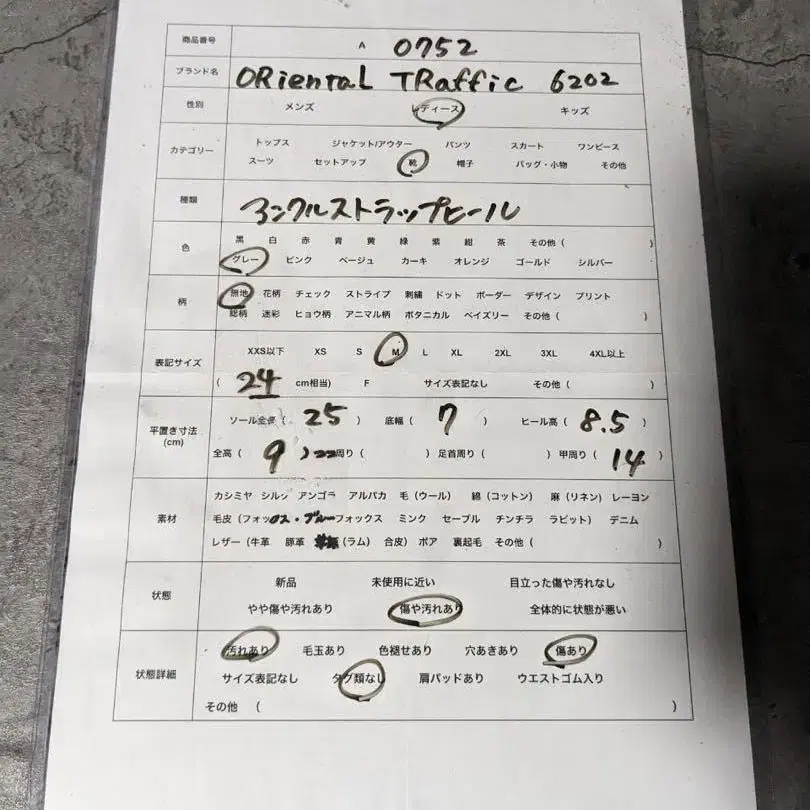 商品番号 A 0752
ブランド名 ORienTaL TRaffic 6202
性別 メンズ レディース キッズ
カテゴリー トップス ジャケット/アウター パンツ スカート ワンピース
スーツ セットアップ 靴 帽子 バッグ・小物 その他
種類 アンクルストラップヒール
色 黒 白 赤 青 黄 緑 紫 紺 茶 その他 ( )
グレー ピンク ベージュ カーキ オレンジ ゴールド シルバー
柄 無地 花柄 チェック ストライプ 刺繍 ドット ボーダー デザイン プリント
総柄 迷彩 ヒョウ柄 アニマル柄 ボタニカル ペイズリー その他 ( )
表記サイズ XXS以下 XS S M L XL 2XL 3XL 4XL以上
( 24 cm相当) F サイズ表記なし その他 ( )
平置き寸法 (cm) ソール全長 ( 25 ) 底幅 ( 7 ) ヒール高 ( 8.5 )
全高 ( 9 ) 周り ( ) 足首周り ( ) 甲周り ( 14 )
素材 カシミヤ シルク アンゴラ アルパカ 毛 (ウール) 綿 (コットン) 麻 (リネン) レーヨン
毛皮 (フォックス・ブルーフォックス ミンク セーブル チンチラ ラビット) デニム
レザー (牛革 豚革 (ラム) 合皮) ボア 裏起毛 その他 ( )
状態 新品 未使用に近い 目立った傷や汚れなし
やや傷や汚れあり 傷や汚れあり 全体的に状態が悪い
状態詳細 汚れあり 毛玉あり 色褪せあり 穴あきあり 傷あり
サイズ表記なし タグ類なし 肩パッドあり ウエストゴム入り
その他 ( )